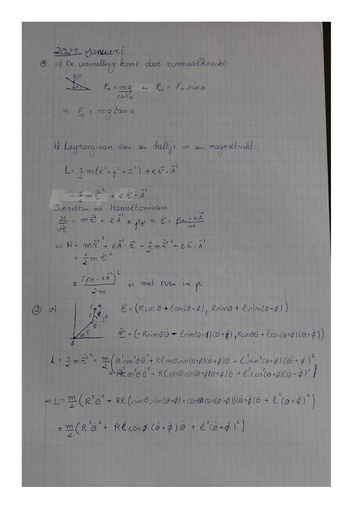 2021 januari
① a) De versnelling komt door normaalkracht
Fₙ = mg/cosα en F₁ = Fₙ sinα
→ F₁ = mg tanα
b) Lagrangiaan van een deeltje in een magneetveld
L = 1/2 m(ẋ² + ẏ² + ż²) + e v⃗·A⃗
= 1/2 m ṙ⃗² + e ṙ⃗·A⃗
Omzetten nr Hamiltoniaan
∂L/∂ṙ = m ṙ⃗ + e A⃗ = pᵣ → ṙ⃗ = (pᵣ - eA⃗)/m
→ H = m ṙ⃗² + e A⃗·ṙ⃗ - 1/2 m ṙ⃗² - e ṙ⃗·A⃗
= 1/2 m ṙ⃗²
= (pᵣ - eA⃗)²/2m is niet even in p
② a) r⃗ = (R cosθ + l cos(θ+ϕ), R sinθ + l sin(θ+ϕ))
ṙ⃗ = (-R sinθ θ̇ - l sin(θ+ϕ)(θ̇+ϕ̇), R cosθ θ̇ + l cos(θ+ϕ)(θ̇+ϕ̇))
L = 1/2 m ṙ⃗² = m/2 (R² sin²θ θ̇² + Rl sinθ sin(θ+ϕ)(θ̇+ϕ̇)θ̇ + l² sin²(θ+ϕ)(θ̇+ϕ̇)²
+ R² cos²θ θ̇² + Rl cosθ cos(θ+ϕ)(θ̇+ϕ̇)θ̇ + l² cos²(θ+ϕ)(θ̇+ϕ̇)²)
→ L = m/2 (R² θ̇² + Rl (sinθ sin(θ+ϕ) + cosθ cos(θ+ϕ))(θ̇+ϕ̇)θ̇ + l² (θ̇+ϕ̇)²)
= m/2 (R² θ̇² + Rl cosϕ (θ̇+ϕ̇) θ̇ + l² (θ̇+ϕ̇)²)